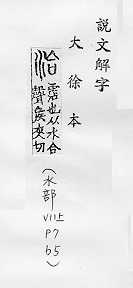 說文解字
大徐本
洽
霑也从水合
聲矦夾切
(水部 VIII上 P765)